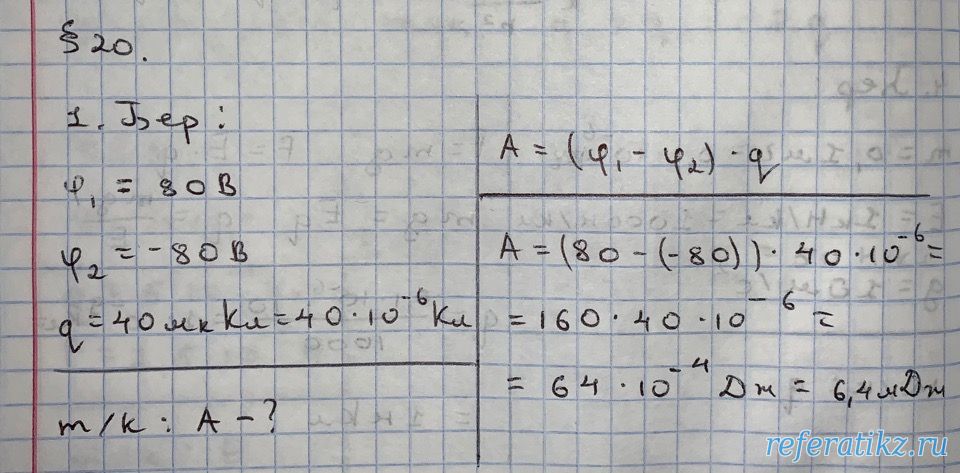 § 20.
1. Бер:
φ₁ = 80 В
φ₂ = -80 В
q = 40 мк Кл = 40 · 10⁻⁶ Кл
т/к: А - ?
A = (φ₁ - φ₂) · q
A = (80 - (-80)) · 40 · 10⁻⁶ =
= 160 · 40 · 10⁻⁶ =
= 64 · 10⁻⁴ Дж = 6,4 мДж
referatikz.ru